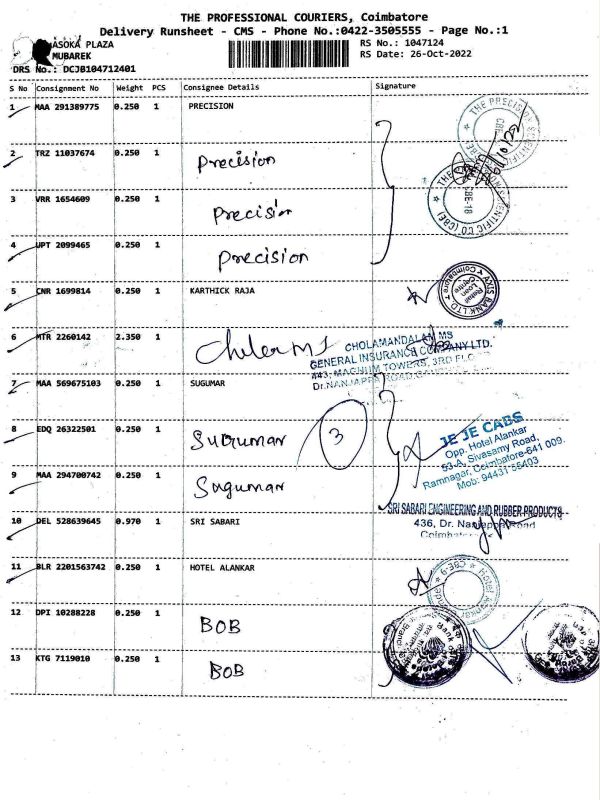 THE PROFESSIONAL COURIERS, Coimbatore
Delivery Runsheet - CMS - Phone No.:0422-3505555 - Page No.:1
ASOKA PLAZA
MUBAREK
RS No.: 1047124
RS Date: 26-Oct-2022
DRS No.: DCJB104712401
S No Consignment No Weight PCS Consignee Details Signature
1 MAA 291389775 0.250 1 PRECISION
2 TRZ 11037674 0.250 1 Precision
3 VRR 1654609 0.250 1 Precision
4 UPT 2099465 0.250 1 Precision
5 CNR 1699814 0.250 1 KARTHICK RAJA
AXIS BANK LTD. Coimbatore
Retail Loan Centre
6 MTR 2260142 2.350 1
CHOLAMANDALAM MS
GENERAL INSURANCE COMPANY LTD.
443, MAGNUM TOWERS, 3RD FLO
Dr.NANJAPPA ROAD,
7 MAA 569675103 0.250 1 SUGUMAR
8 EDQ 26322501 0.250 1 3
JE JE CABS
Opp. Hotel Alankar
53-A, Sivasamy Road,
Ramnagar, Coimbatore-641 009.
Mob: 94431 55403
9 MAA 294700742 0.250 1 Sugumar
SRI SABARI ENGINEERING AND RUBBER PRODUCTS
436, Dr. Nanjappa Road
10 DEL 528639645 0.970 1 SRI SABARI
11 BLR 2201563742 0.250 1 HOTEL ALANKAR
12 DPI 10288228 0.250 1 BOB
13 KTG 7119010 0.250 1 BOB